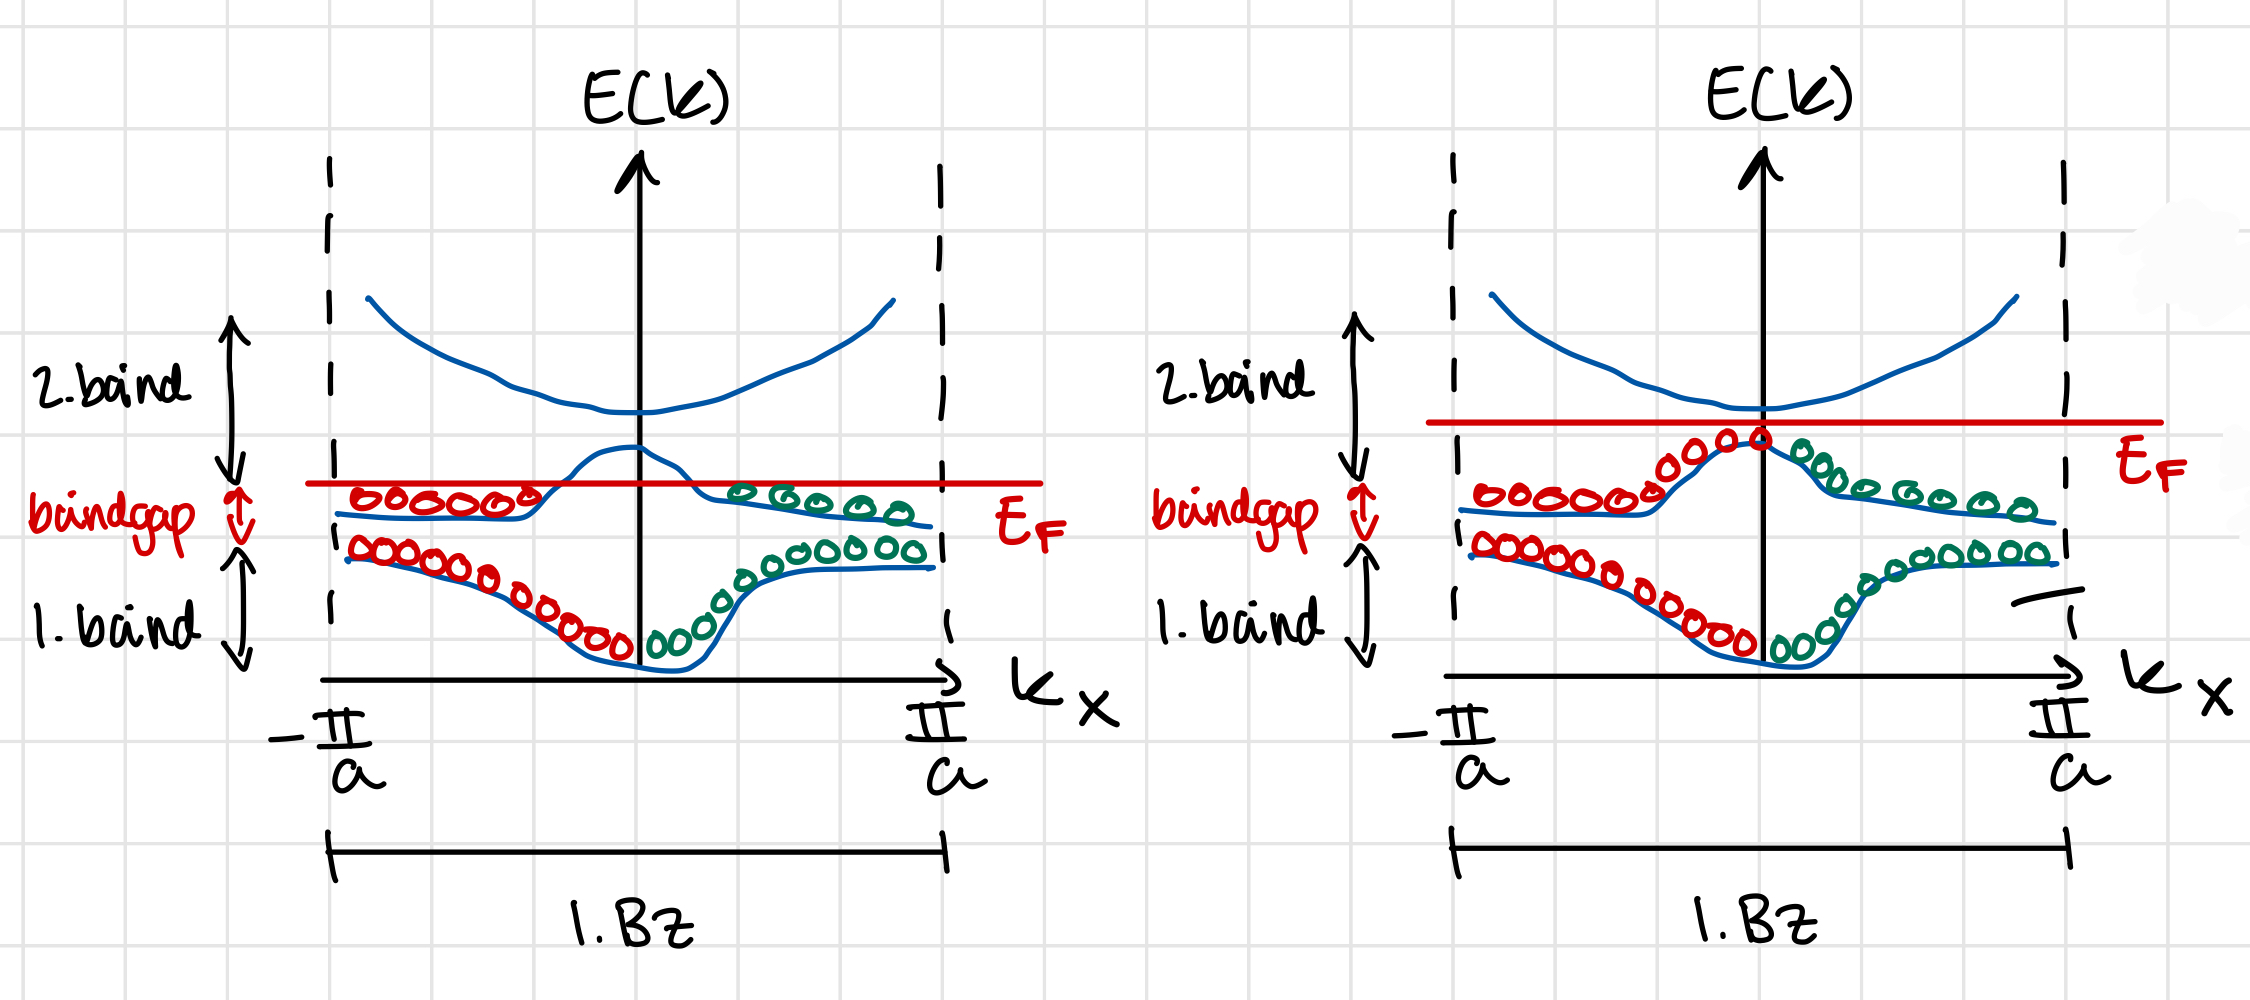 E(k)
2.band
bandgap
1.band
E_F
k_x
-π/a
π/a
1.Bz
E(k)
2.band
bandgap
1.band
E_F
k_x
-π/a
π/a
1.Bz